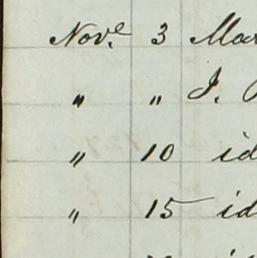 Nov.e 3
" " J.
" 10 id
" 15 id